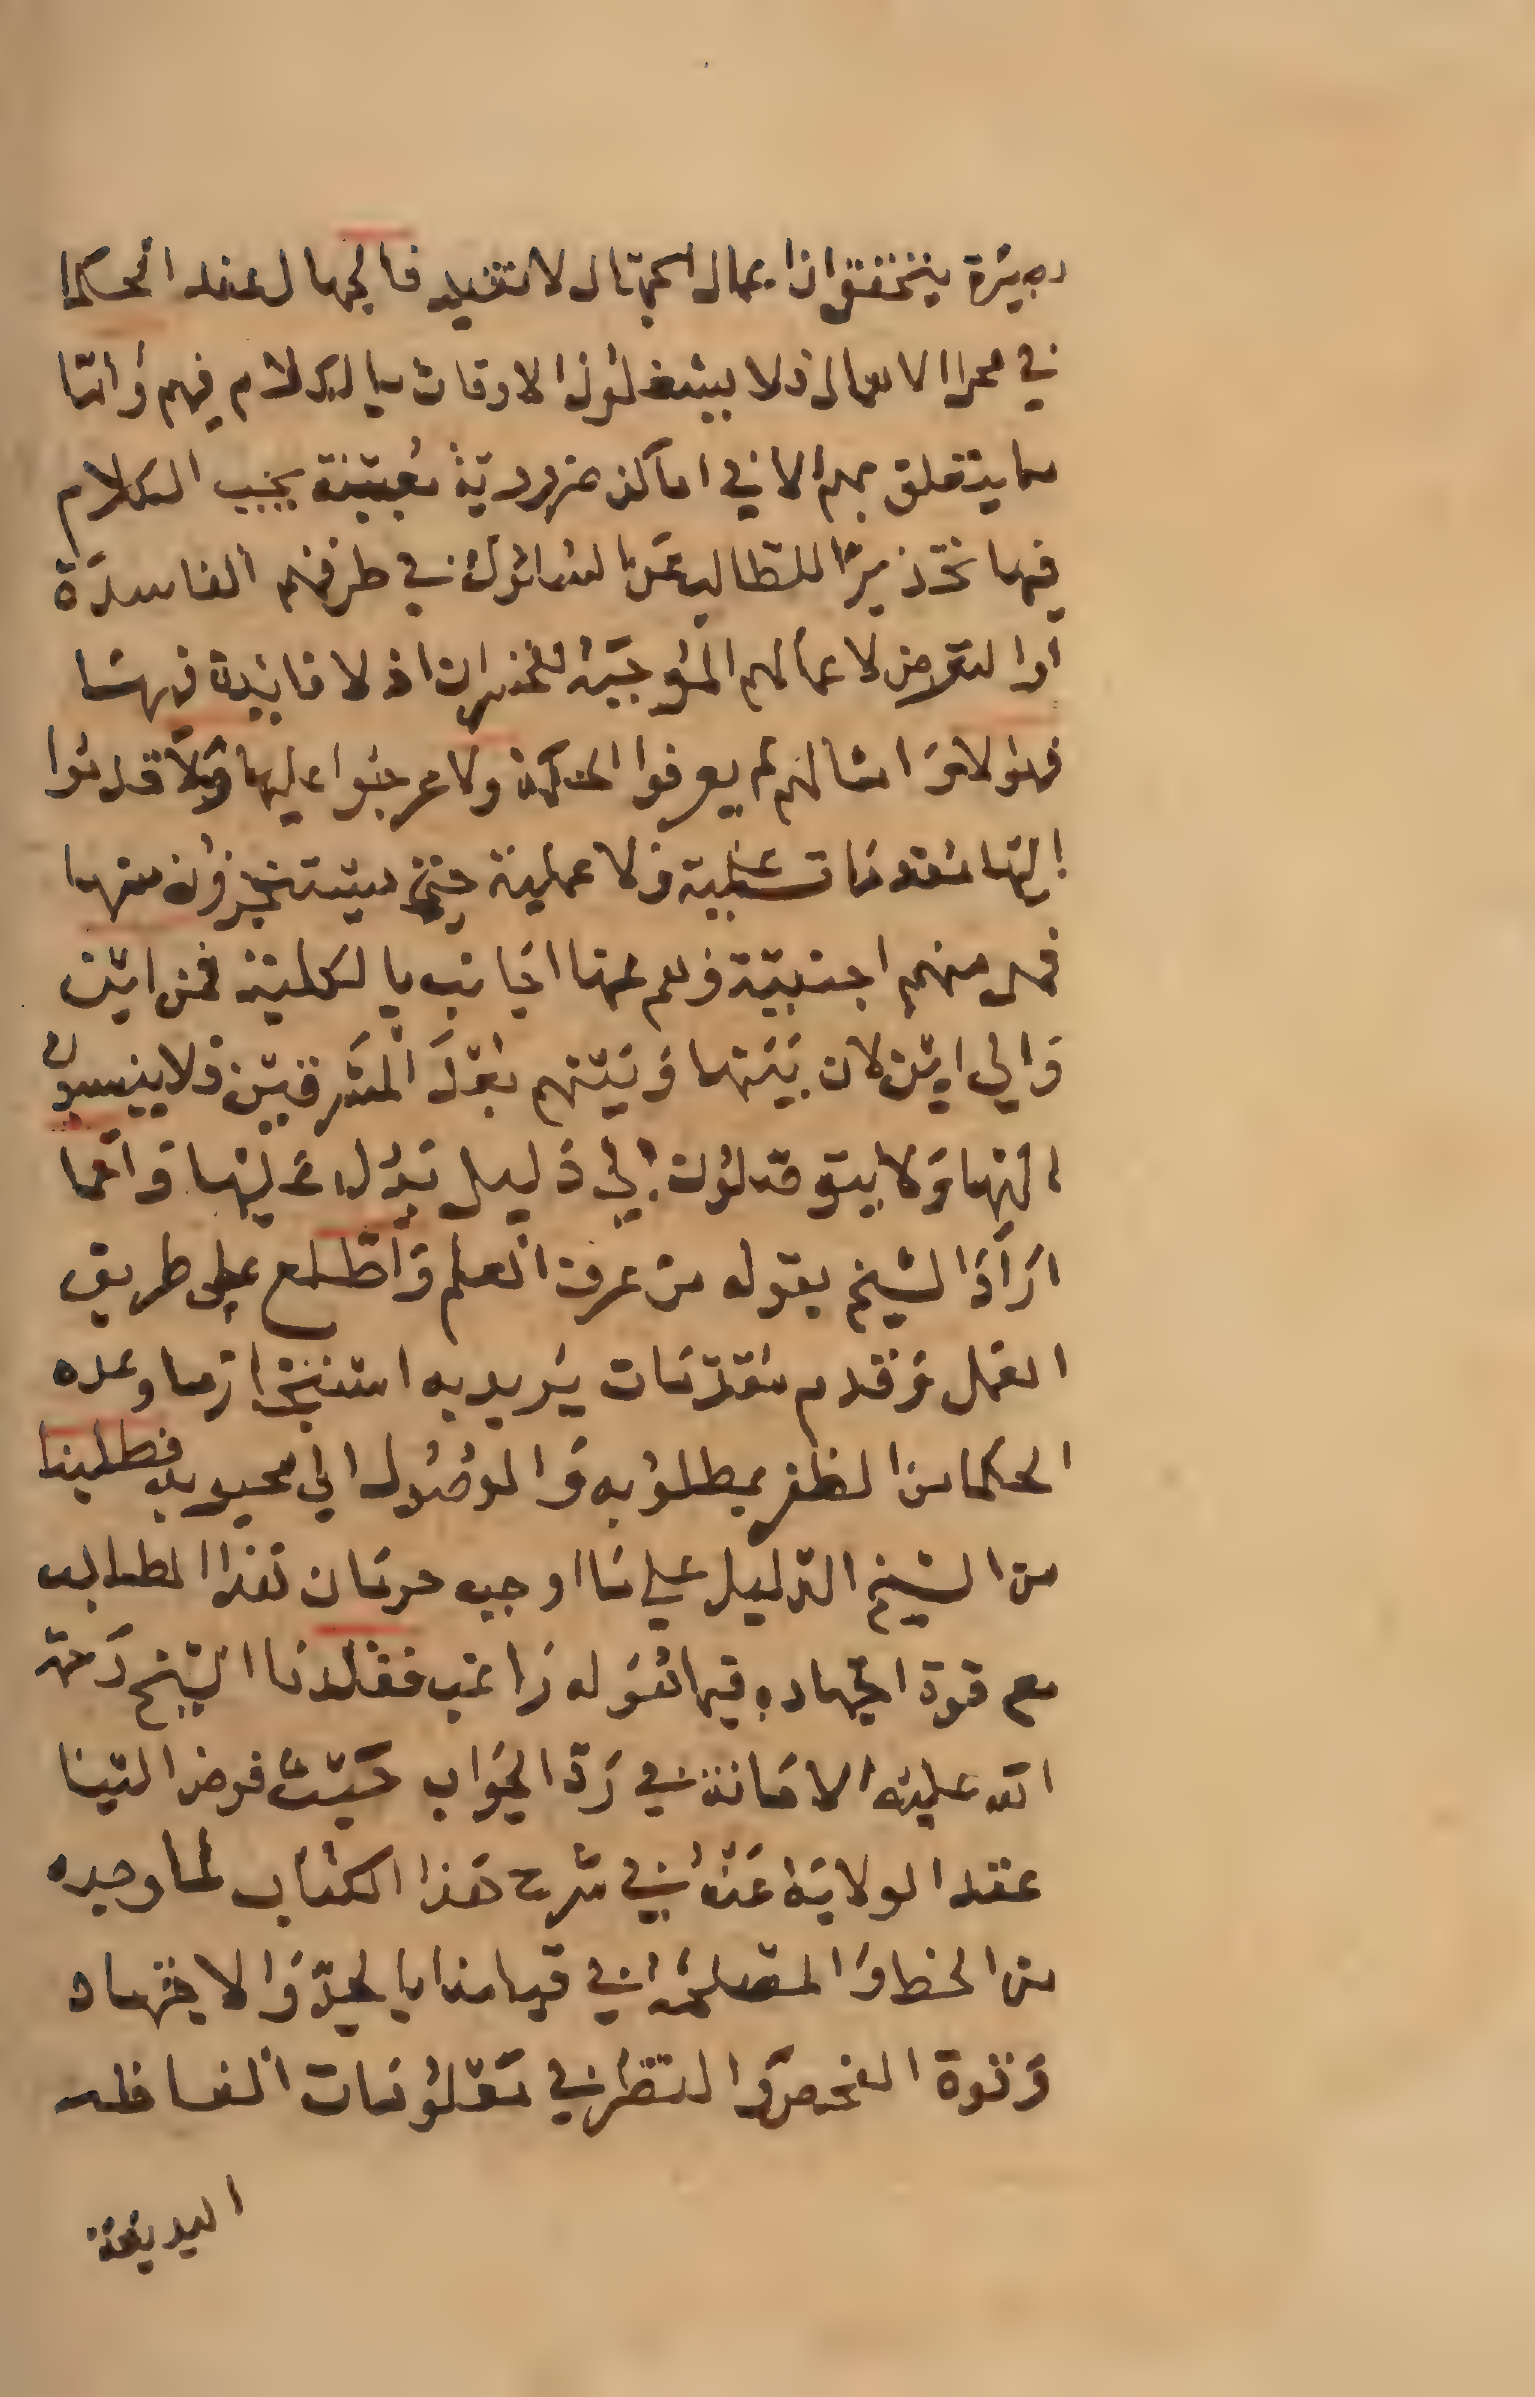 بصيرة يتحقق ان اعمال الجهال لا تفيد فالجهال عند الحكما
في محل الاهمال فلا يشغلون الاوقات بالكلام فيهم واما
ما يتعلق بهم الا في اماكن ضرورية معينة يجب الكلام
فيها تحذيرا للطالب عن السلوك في طرقهم الفاسدة
او التعرض لاعمالهم الموجبة للخسران اذ لا فايدة فيها
فهولاء وامثالهم لم يعرفوا الحكمة ولا عرجوا عليها ولا قدموا
اليها مقدمات علمية ولا عملية حتى يستنجزون منها
فهي منهم اجنبية وهم عنها اجانب بالكلية فمن اين
والي اين لان بينها وبينهم بعد المشرقين ولا ينسبون
اليها ولا يتوصلون الي دليل يدل عليها وانما
اراد الشيخ بقوله من عرف العلم واطلع علي طريق
العمل وقدم مقدمات يريد به استنجاز ما وعده
الحكما من الظفر بمطلوبه والوصول الي محبوبه فطلبنا
من الشيخ الدليل علي ما اوجب حرمان هذا الطالب
مع قوة اجتهاده فيما هو له راغب فقلدنا الشيخ رحمة
الله عليه الامانة في رد الجواب حيث فوض الينا
عقد الولاية عنه في شرح هذا الكتاب لما وجده
من الحظ والمصلحة في قيامنا بالجد والاجتهاد
وقوة الفحص والنظر في معلومات الفاظه
البديعة